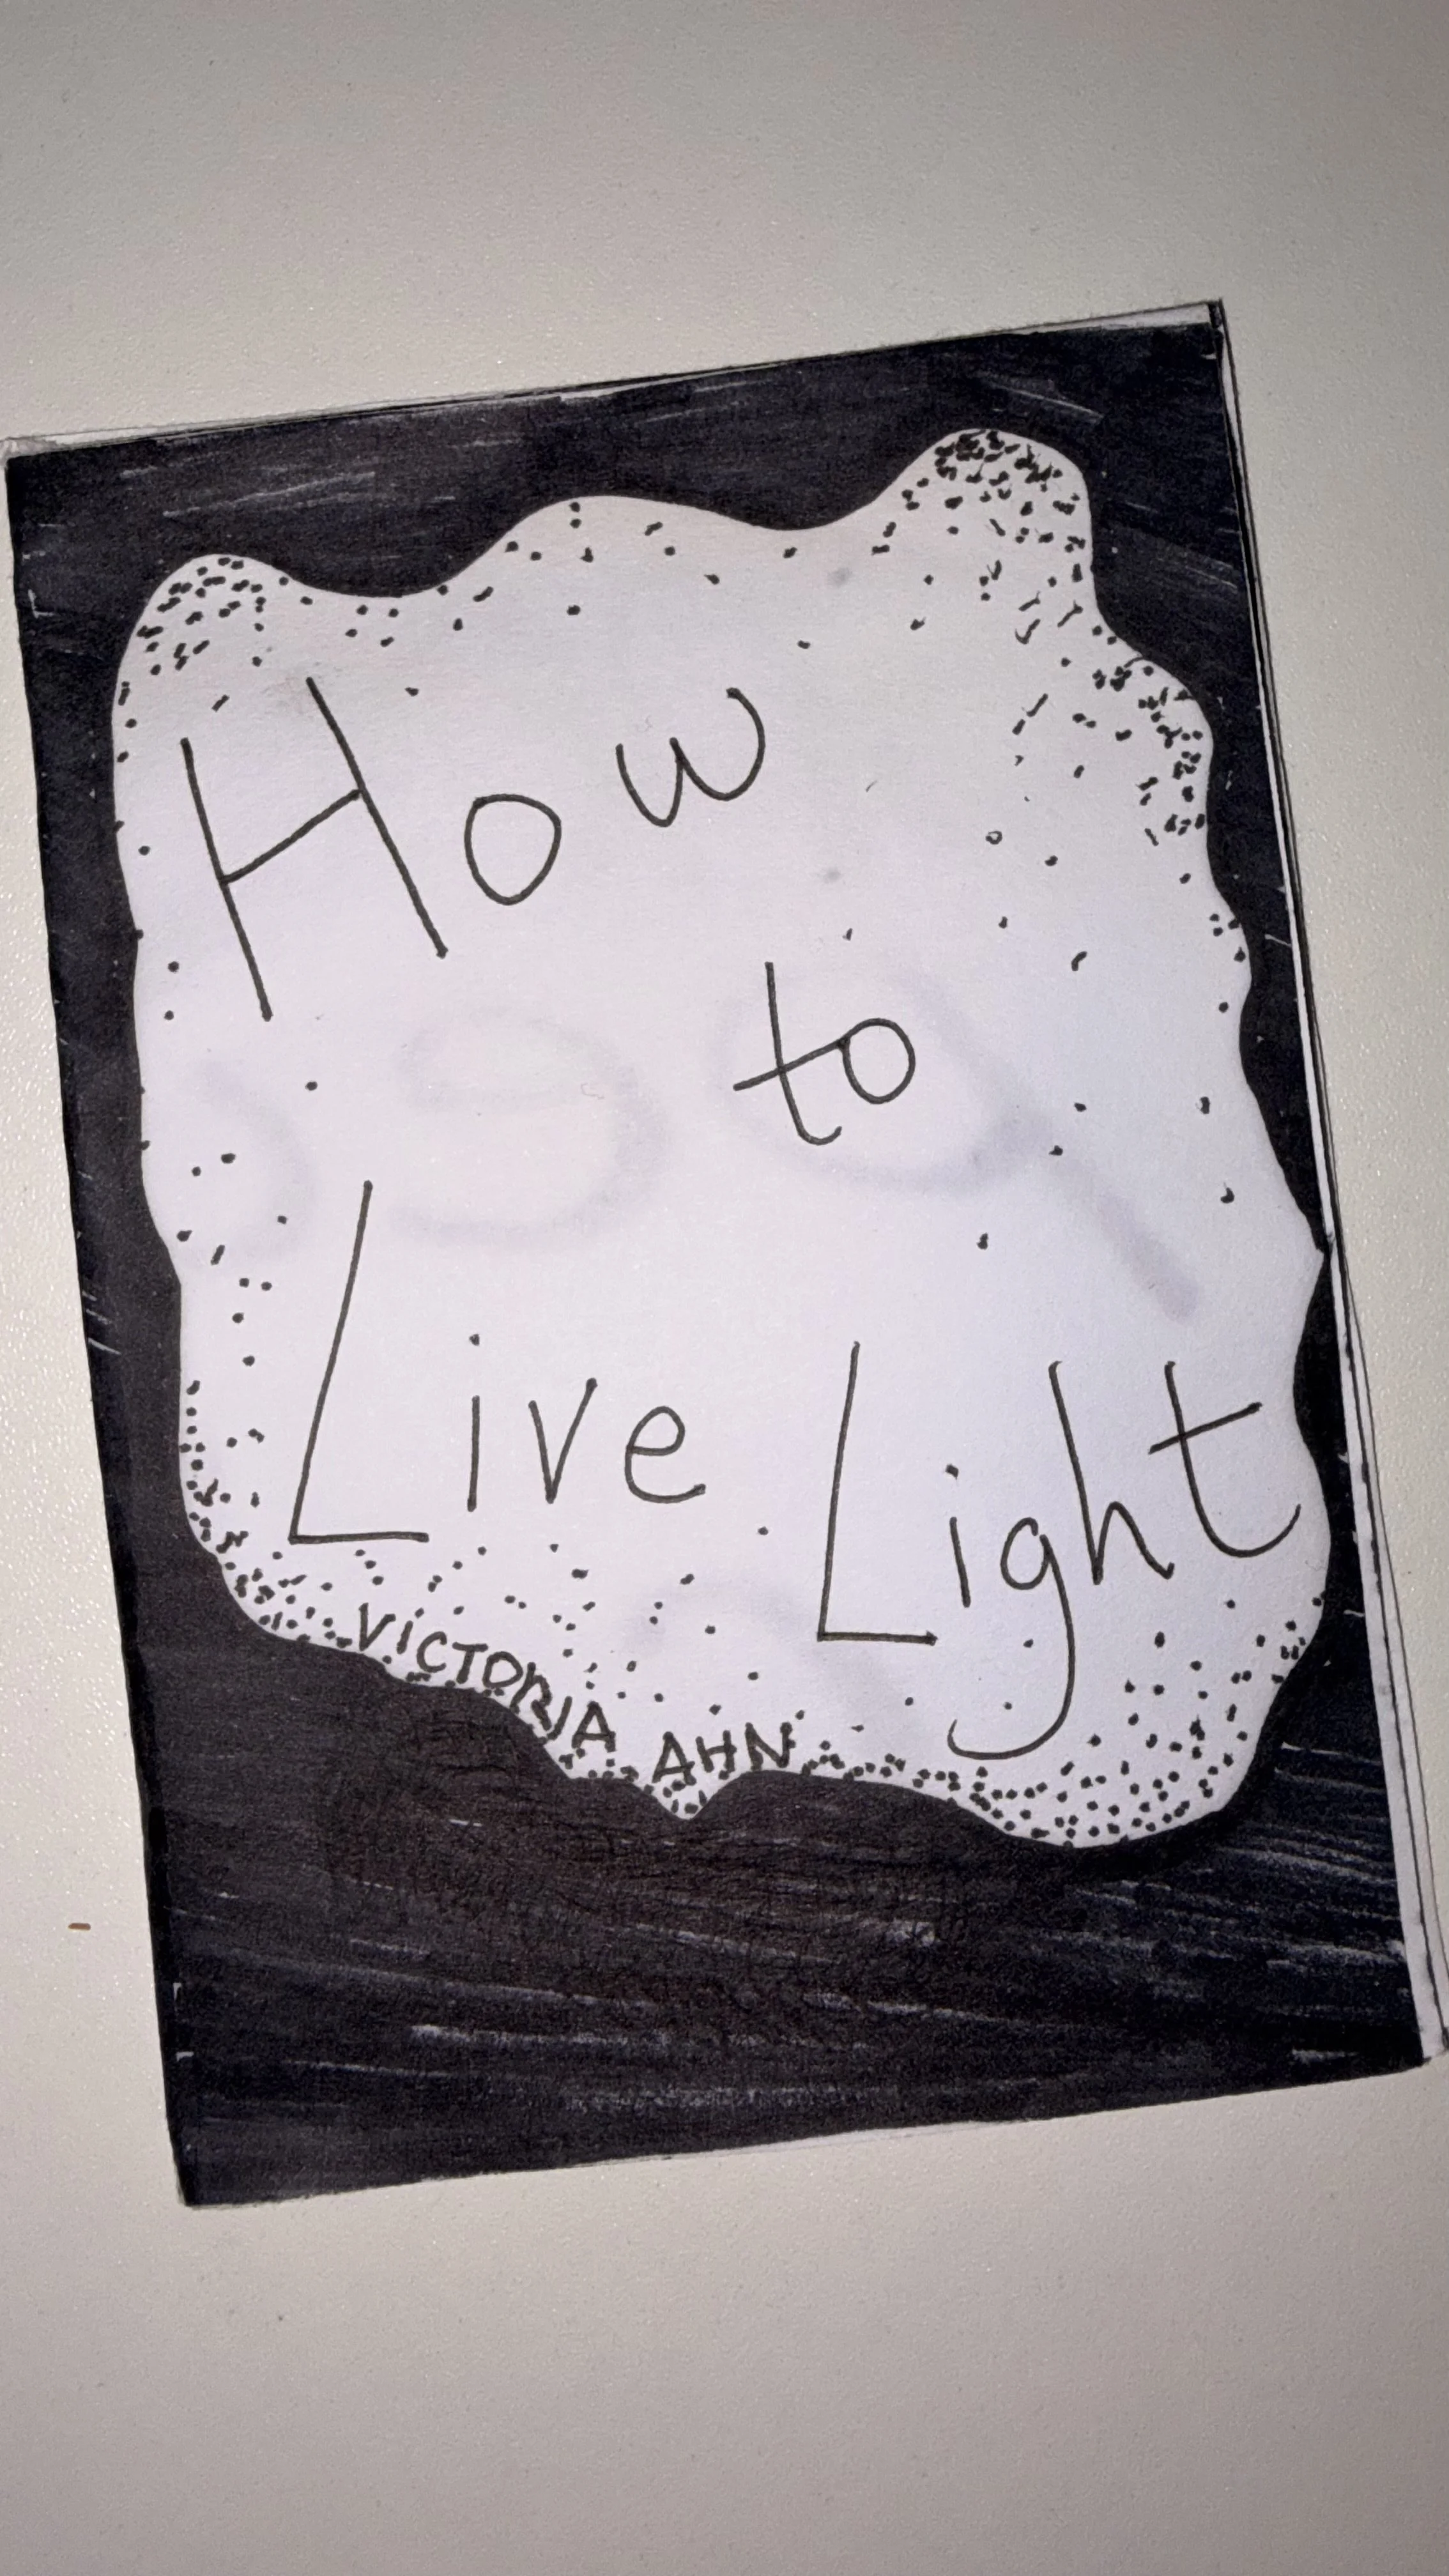 How
to
Live Light
VICTORIA AHN